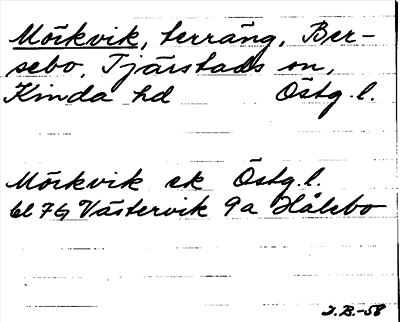 Mörkvik, terräng, Ber-
sebo, Tjärstads sn,
Kinda hd Östg.l.
Mörkvik ek Östg.l.
bl 7G Västervik 9a Hålsbo
J.B.-58